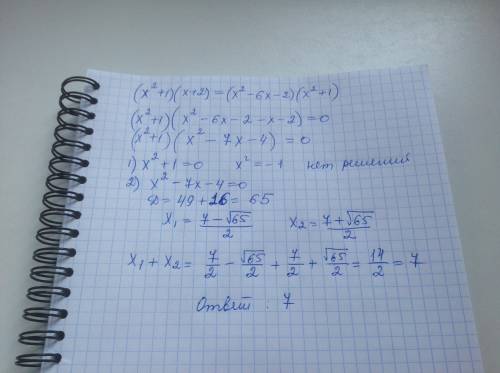 (x²+1)(x+2)=(x²-6x-2)(x²+1)
(x²+1)(x²-6x-2-x-2)=0
(x²+1)(x²-7x-4)=0
1) x²+1=0 x²=-1 нет решений
2) x²-7x-4=0
D=49+16=65
x₁=(7-√65)/2 x₂=(7+√65)/2
x₁+x₂=7/2-√65/2+7/2+√65/2=14/2=7
Ответ: 7